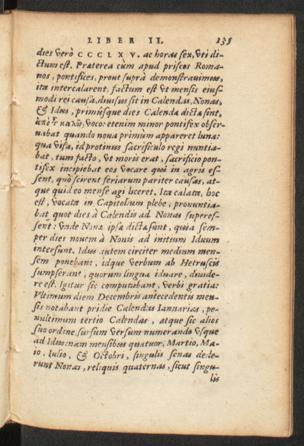 LIBER II. 235
dies verò CCCCLXV. ac horas sex, vti di-
ctum est. Præterea cùm apud priscos Roma-
nos, pontifices, prout suprà demonstrauimus,
ita intercalarent, factum est vt mensis eius-
modi rei causa, diuisus sit in Calendas, Nonas,
& Idus, primúsque dies Calenda dicta sint,
voco: etenim minor pontifex obser-
uabat quando noua primùm appareret luna:
qua visa, id protinus sacrificulo regi nuntia-
bat. tum facto, vt moris erat, sacrificio pon-
tifex incipiebat eos vocare qui in agris es-
sent, quò scirent feriarum pariter causas, at-
que quid eo mense agi liceret. Ita calata, hoc
est, vocata in Capitolium plebe, pronuntia-
bat quot dies à Calendis ad Nonas superes-
sent: vnde Nona ipsæ dictæ sunt, quia sem-
per dies nouem à Nonis ad initium Iduum
intersunt. Idus autem circiter medium men-
sem ponebant, idque verbum ab Hetruscis
sumpserant, quorum lingua iduare, diuide-
re est. Igitur sic computabant, verbi gratia:
Vltimum diem Decembris antecedentis men-
sis notabant pridie Calendas Ianuarias, pe-
nultimum tertio Calendas, atque sic alios
suo ordine sursum versum numerando vsque
ad Idus: nam mensibus quatuor, Martio, Ma-
io, Iulio, & Octobri, singulis senas dede-
runt Nonas, reliquis quaternas, sicut singu-
lis